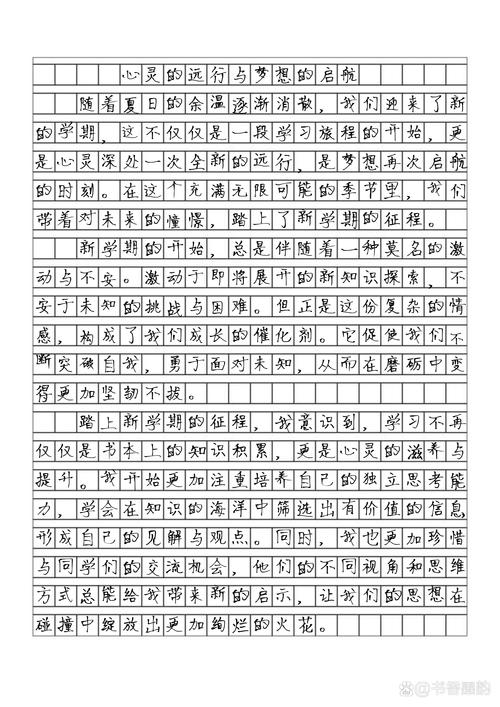 心灵的远行与梦想的启航
随着夏日的余温逐渐消散，我们迎来了新
的学期，这不仅仅是一段学习旅程的开始，更
是心灵深处一次全新的远行，是梦想再次启航
的时刻。在这个充满无限可能的季节里，我们
带着对未来的憧憬，踏上了新学期的征程。
新学期的开始，总是伴随着一种莫名的激
动与不安。激动于即将展开的新知识探索，不
安于未知的挑战与困难。但正是这份复杂的情
感，构成了我们成长的催化剂。它促使我们不
断突破自我，勇于面对未知，从而在磨砺中变
得更加坚韧不拔。
踏上新学期的征程，我意识到，学习不再
仅仅是书本上的知识积累，更是心灵的滋养与
提升。我开始更加注重培养自己的独立思考能
力，学会在知识的海洋中筛选出有价值的信息
形成自己的见解与观点。同时，我也更加珍惜
与同学们的交流机会，他们的不同视角和思维
方式总能给我带来新的启示，让我们的思想在
碰撞中绽放出更加绚烂的火花。